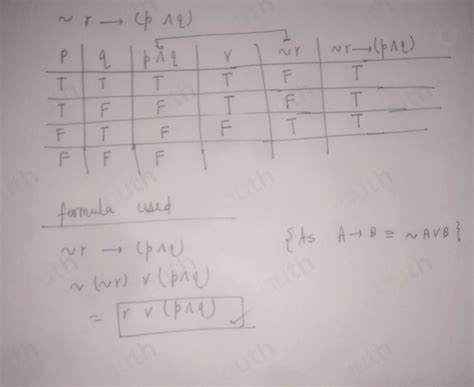 ~ r → (p ∧ q)
p q p∧q r ~r ~r→(p∧q)
T T T T F T
T F F T F T
F T F F T T
F F F
formula used
~r → (p∧q) {As A→B ≡ ~A∨B}
~(~r) ∨ (p∧q)
= r ∨ (p∧q) ✓